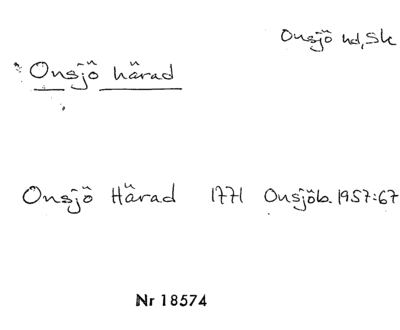 Onsjö hd, Sk
Onsjö härad
Onsjö Härad 1771 Onsjöb. 1957:67
Nr 18574